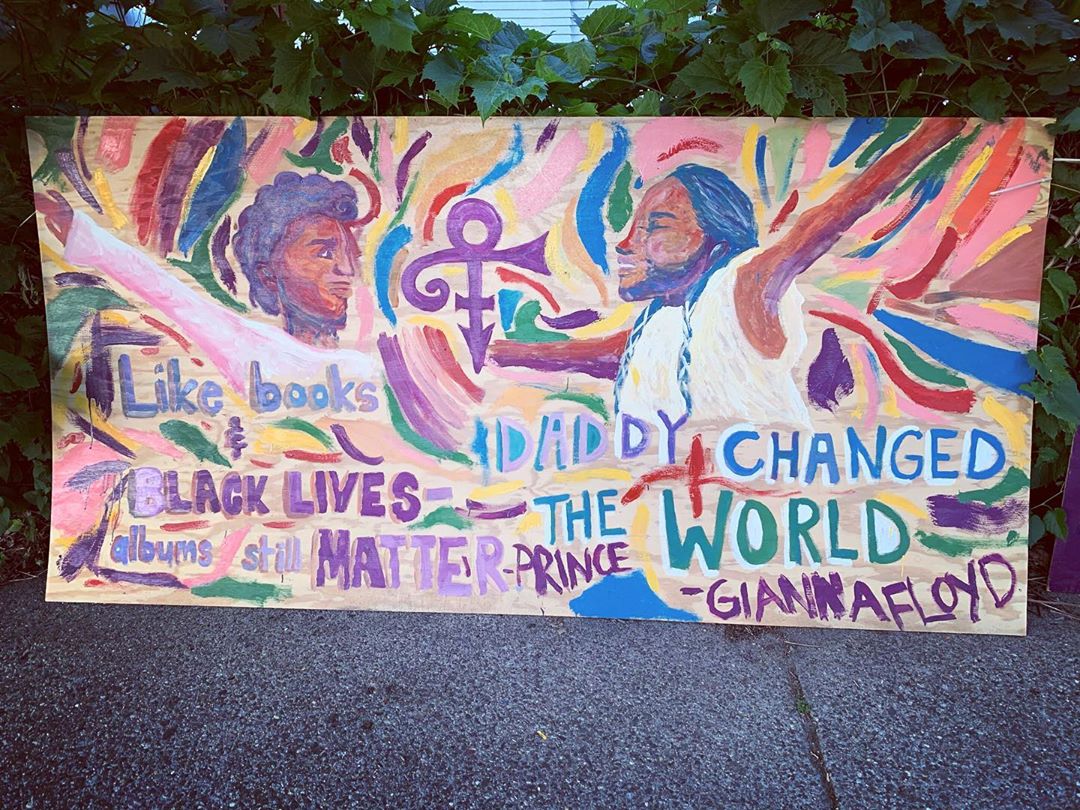 Like books
&
BLACK LIVES-
albums still MATTER-PRINCE
DADDY CHANGED
THE WORLD
-GIANNA FLOYD